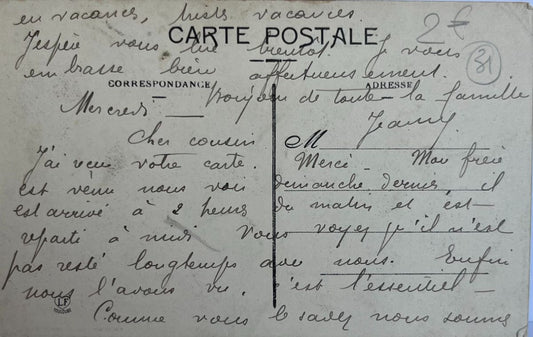 en vacances, tristes vacances.
2€
CARTE POSTALE
J'espère vous lire bientôt. Je vous
embrasse bien affectueusement.
31
CORRESPONDANCE
ADRESSE
Bonjour de toute la famille
Mercredi
Jeanny
Cher cousin
M
J'ai reçu votre carte. Merci - Mon frère
est venu nous voir dimanche dernier, il
est arrivé à 2 heures du matin et est
reparti à midi. Vous voyez qu'il n'est
pas resté longtemps avec nous. Enfin
nous l'avons vu, c'est l'essentiel -
Comme vous le savez nous sommes